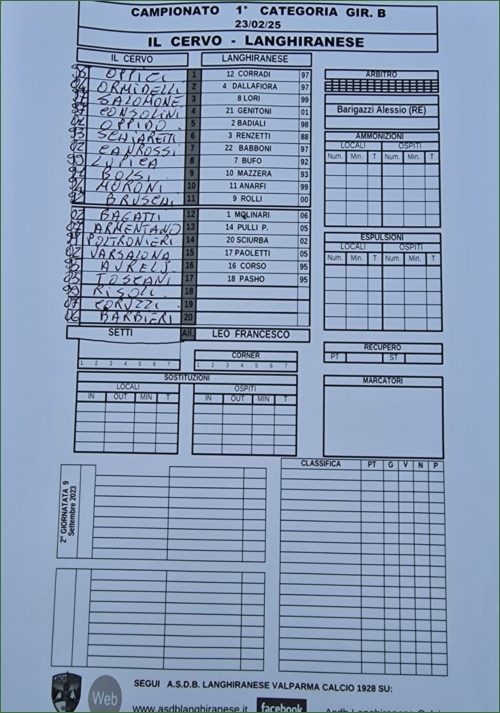 CAMPIONATO 1° CATEGORIA GIR. B
23/02/25
IL CERVO - LANGHIRANESE
IL CERVO LANGHIRANESE
OPPICI 1 12 CORRADI 97
ORMIDELLI 2 4 DALLAFIORA 97
SALOMONE 3 8 LORI 99
97 CONSOLINI 4 21 GENITONI 01
02 OPPIDO 5 2 BADIALI 98
93 SCHIARETTI 6 3 RENZETTI 88
02 CANROSSI 7 22 BABBONI 97
99 LUPICA 8 7 BUFO 92
BOLSI 9 10 MAZZERA 93
MORONI 10 11 ANARFI 99
92 BRUSCHI 11 9 ROLLI 00
02 BAGATTI 12 1 MOLINARI 06
07 ARMENTANO 13 14 PULLI P. 05
POLTRONIERI 14 20 SCIURBA 02
02 VARSALONA 15 17 PAOLETTI 05
AURELI 16 16 CORSO 95
05 TOSCANI 17 18 PASHO 95
RISOLI 18
07 CORUZZI 19
06 BARBIERI 20
SETTI All. LEO FRANCESCO
ARBITRO
Barigazzi Alessio (RE)
AMMONIZIONI
LOCALI OSPITI
Num. Min T Num. Min T
ESPULSIONI
LOCALI OSPITI
Num. Min T Num. Min T
RECUPERO
PT ST
CORNER
1 2 3 4 5 6 7 1 2 3 4 5 6 7
SOSTITUZIONI
LOCALI OSPITI
IN OUT MIN T IN OUT MIN T
MARCATORI
CLASSIFICA PT G V N P
2° GIORNATATA 9
Settembre 2023
SEGUI A.S.D.B. LANGHIRANESE VALPARMA CALCIO 1928 SU:
Web www.asdblanghiranese.it facebook Asdb Langhiranese